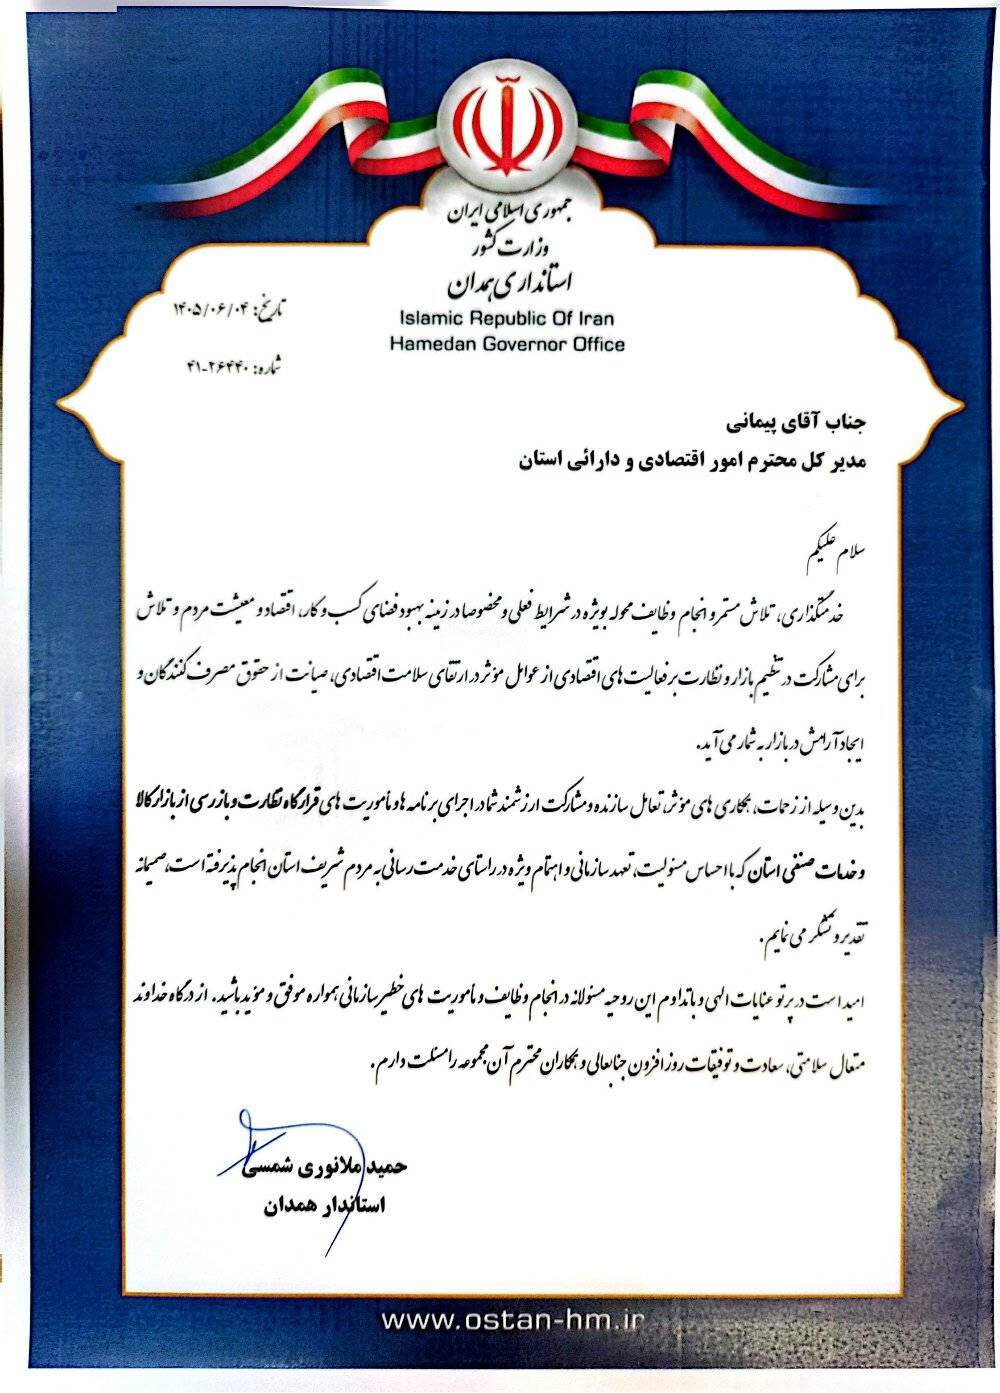 جمهوری اسلامی ایران
وزارت کشور
استانداری همدان
Islamic Republic Of Iran
Hamedan Governor Office
تاریخ: ۱۴۰۵/۰۶/۰۴
شماره: ۴۱-۲۶۴۴۰
جناب آقای پیمانی
مدیر کل محترم امور اقتصادی و دارائی استان
سلام علیکم
خدمتگذاری، تلاش مستمر و انجام وظایف محوله بویژه در شرایط فعلی و مخصوصا در زمینه بهبود فضای کسب و کار، اقتصاد و معیشت مردم و تلاش
برای مشارکت در تنظیم بازار و نظارت بر فعالیت های اقتصادی از عوامل مؤثر در ارتقای سلامت اقتصادی، صیانت از حقوق مصرف کنندگان و
ایجاد آرامش در بازار به شمار می آید.
بدین وسیله از زحمات، همکاری های مؤثر، تعامل سازنده و مشارکت ارزشمند شما در اجرای برنامه ها و مأموریت های قرارگاه نظارت و بازرسی از بازار کالا
و خدمات صنفی استان که با احساس مسئولیت، تعهد سازمانی و اهتمام ویژه در راستای خدمت رسانی به مردم شریف استان انجام پذیرفته است، صمیمانه
تقدیر و تشکر می نمایم.
امید است در پرتو عنایات الهی و با تداوم این روحیه مسئولانه در انجام وظایف و مأموریت های خطیر سازمانی همواره موفق و مؤید باشید. از درگاه خداوند
متعال سلامتی، سعادت و توفیقات روز افزون جنابعالی و همکاران محترم آن مجموعه را مسئلت دارم.
حمید ملانوری شمسی
استاندار همدان
www.ostan-hm.ir